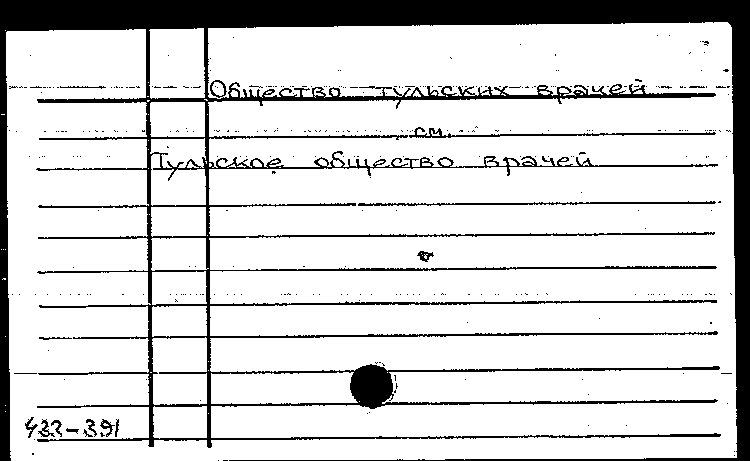 Общество тульских врачей
см.
Тульское общество врачей
433-391